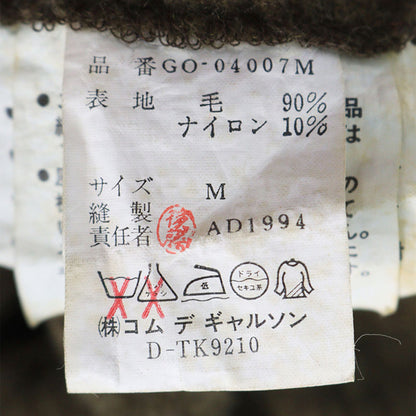 品 番 GO-04007M
表 地 毛 90%
ナイロン 10%
サイズ M
縫 製
責任者 AD1994
低 ドライ
セキユ系
㈱コム デ ギャルソン
D-TK9210
品
は